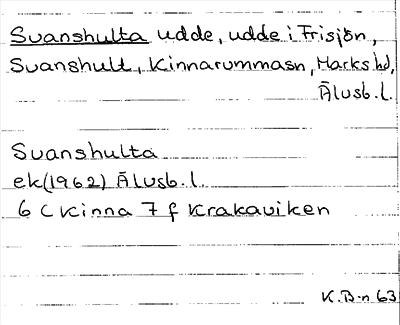 Svanshulta udde, udde i Frisjön,
Svanshult, Kinnarummasn, Marks hd,
Älvsb.l.
Svanshulta
ek(1962) Älvsb.l.
6 C Kinna 7 f Krakaviken
K.B-n 63